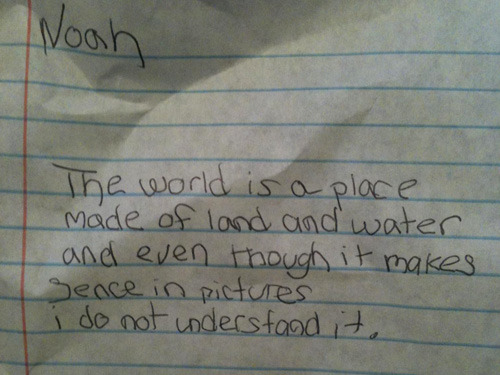 Noah
The world is a place
made of land and water
and even though it makes
sence in pictures
i do not understand it.